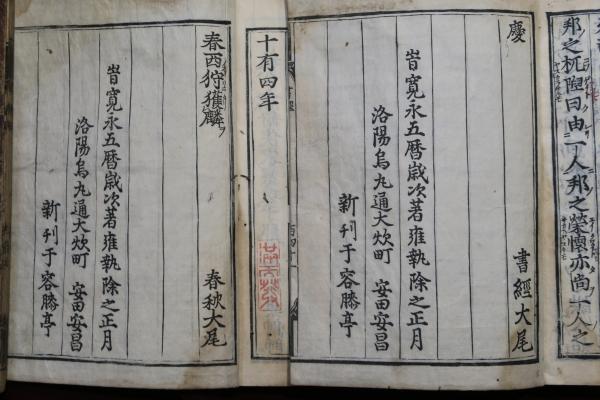 邦之杌隉曰由一人邦之榮懷亦尚一人之
慶
書經大尾
旹寛永五暦歳次著雍執除之正月
洛陽烏丸通大炊町 安田安昌
新刊于容膝亭
十有四年
春西狩獲麟
春秋大尾
旹寛永五暦歳次著雍執除之正月
洛陽烏丸通大炊町 安田安昌
新刊于容膝亭